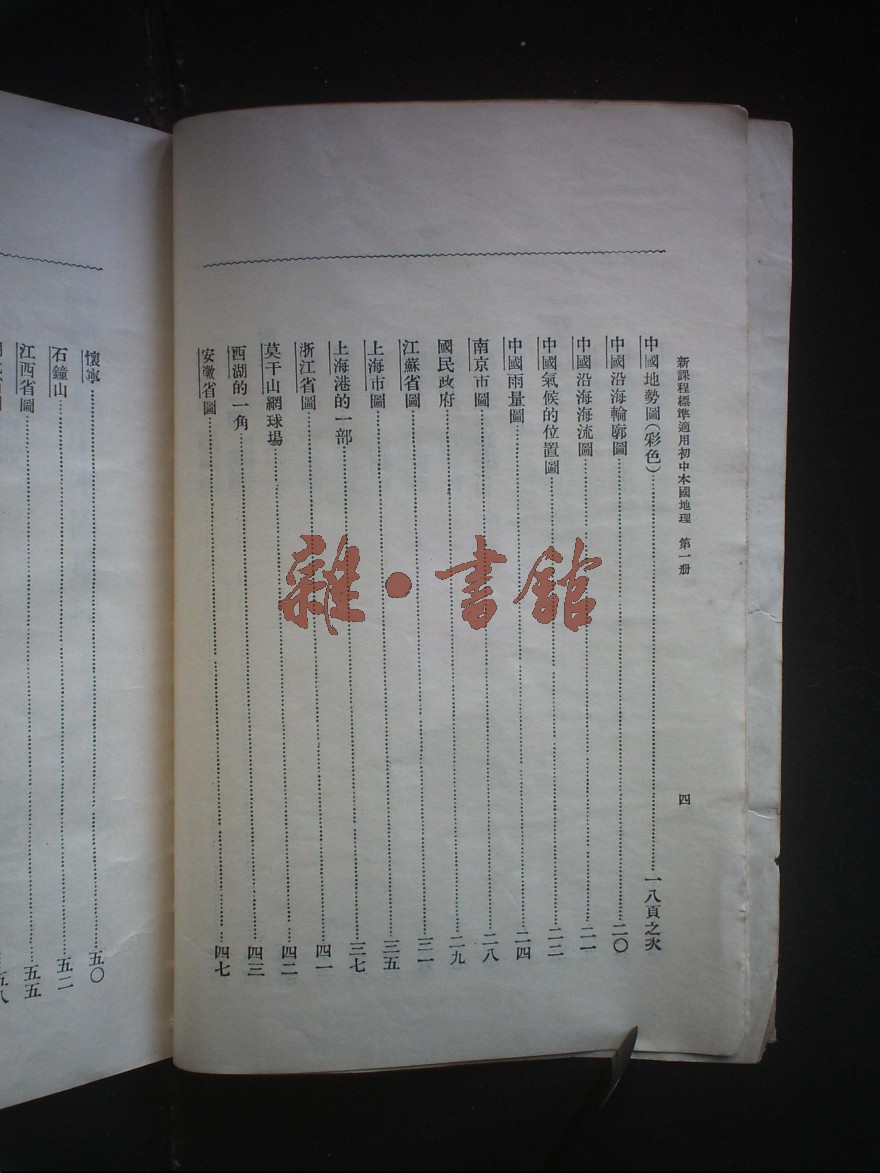 新課程標準適用初中本國地理 第一册 四
中國地勢圖(彩色)……一八頁之次
中國沿海輪廓圖……二〇
中國沿海海流圖……二一
中國氣候的位置圖……二二
中國雨量圖……二四
南京市圖……二八
國民政府……二九
江蘇省圖……三一
上海市圖……三五
上海港的一部……三七
浙江省圖……四一
莫干山網球場……四二
西湖的一角……四三
安徽省圖……四七
懷寧……五〇
石鐘山……五二
江西省圖……五五
五八
雜·書館